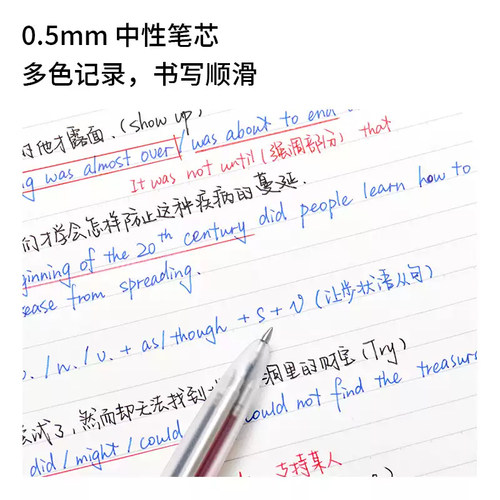 0.5mm 中性笔芯
多色记录，书写顺滑
时他才露面.(show up)
g was almost over/was about to end
It was not until(强调部分) that
们才学会怎样防止这种疾病的蔓延.
ginning of the 20th century did people learn how to
ease from spreading.
./n./v. + as/though + s + v (让步状语从句)
试了，然而却无法找到 洞里的财宝(Try)
did/might/could ould not find the treasur
支持某人